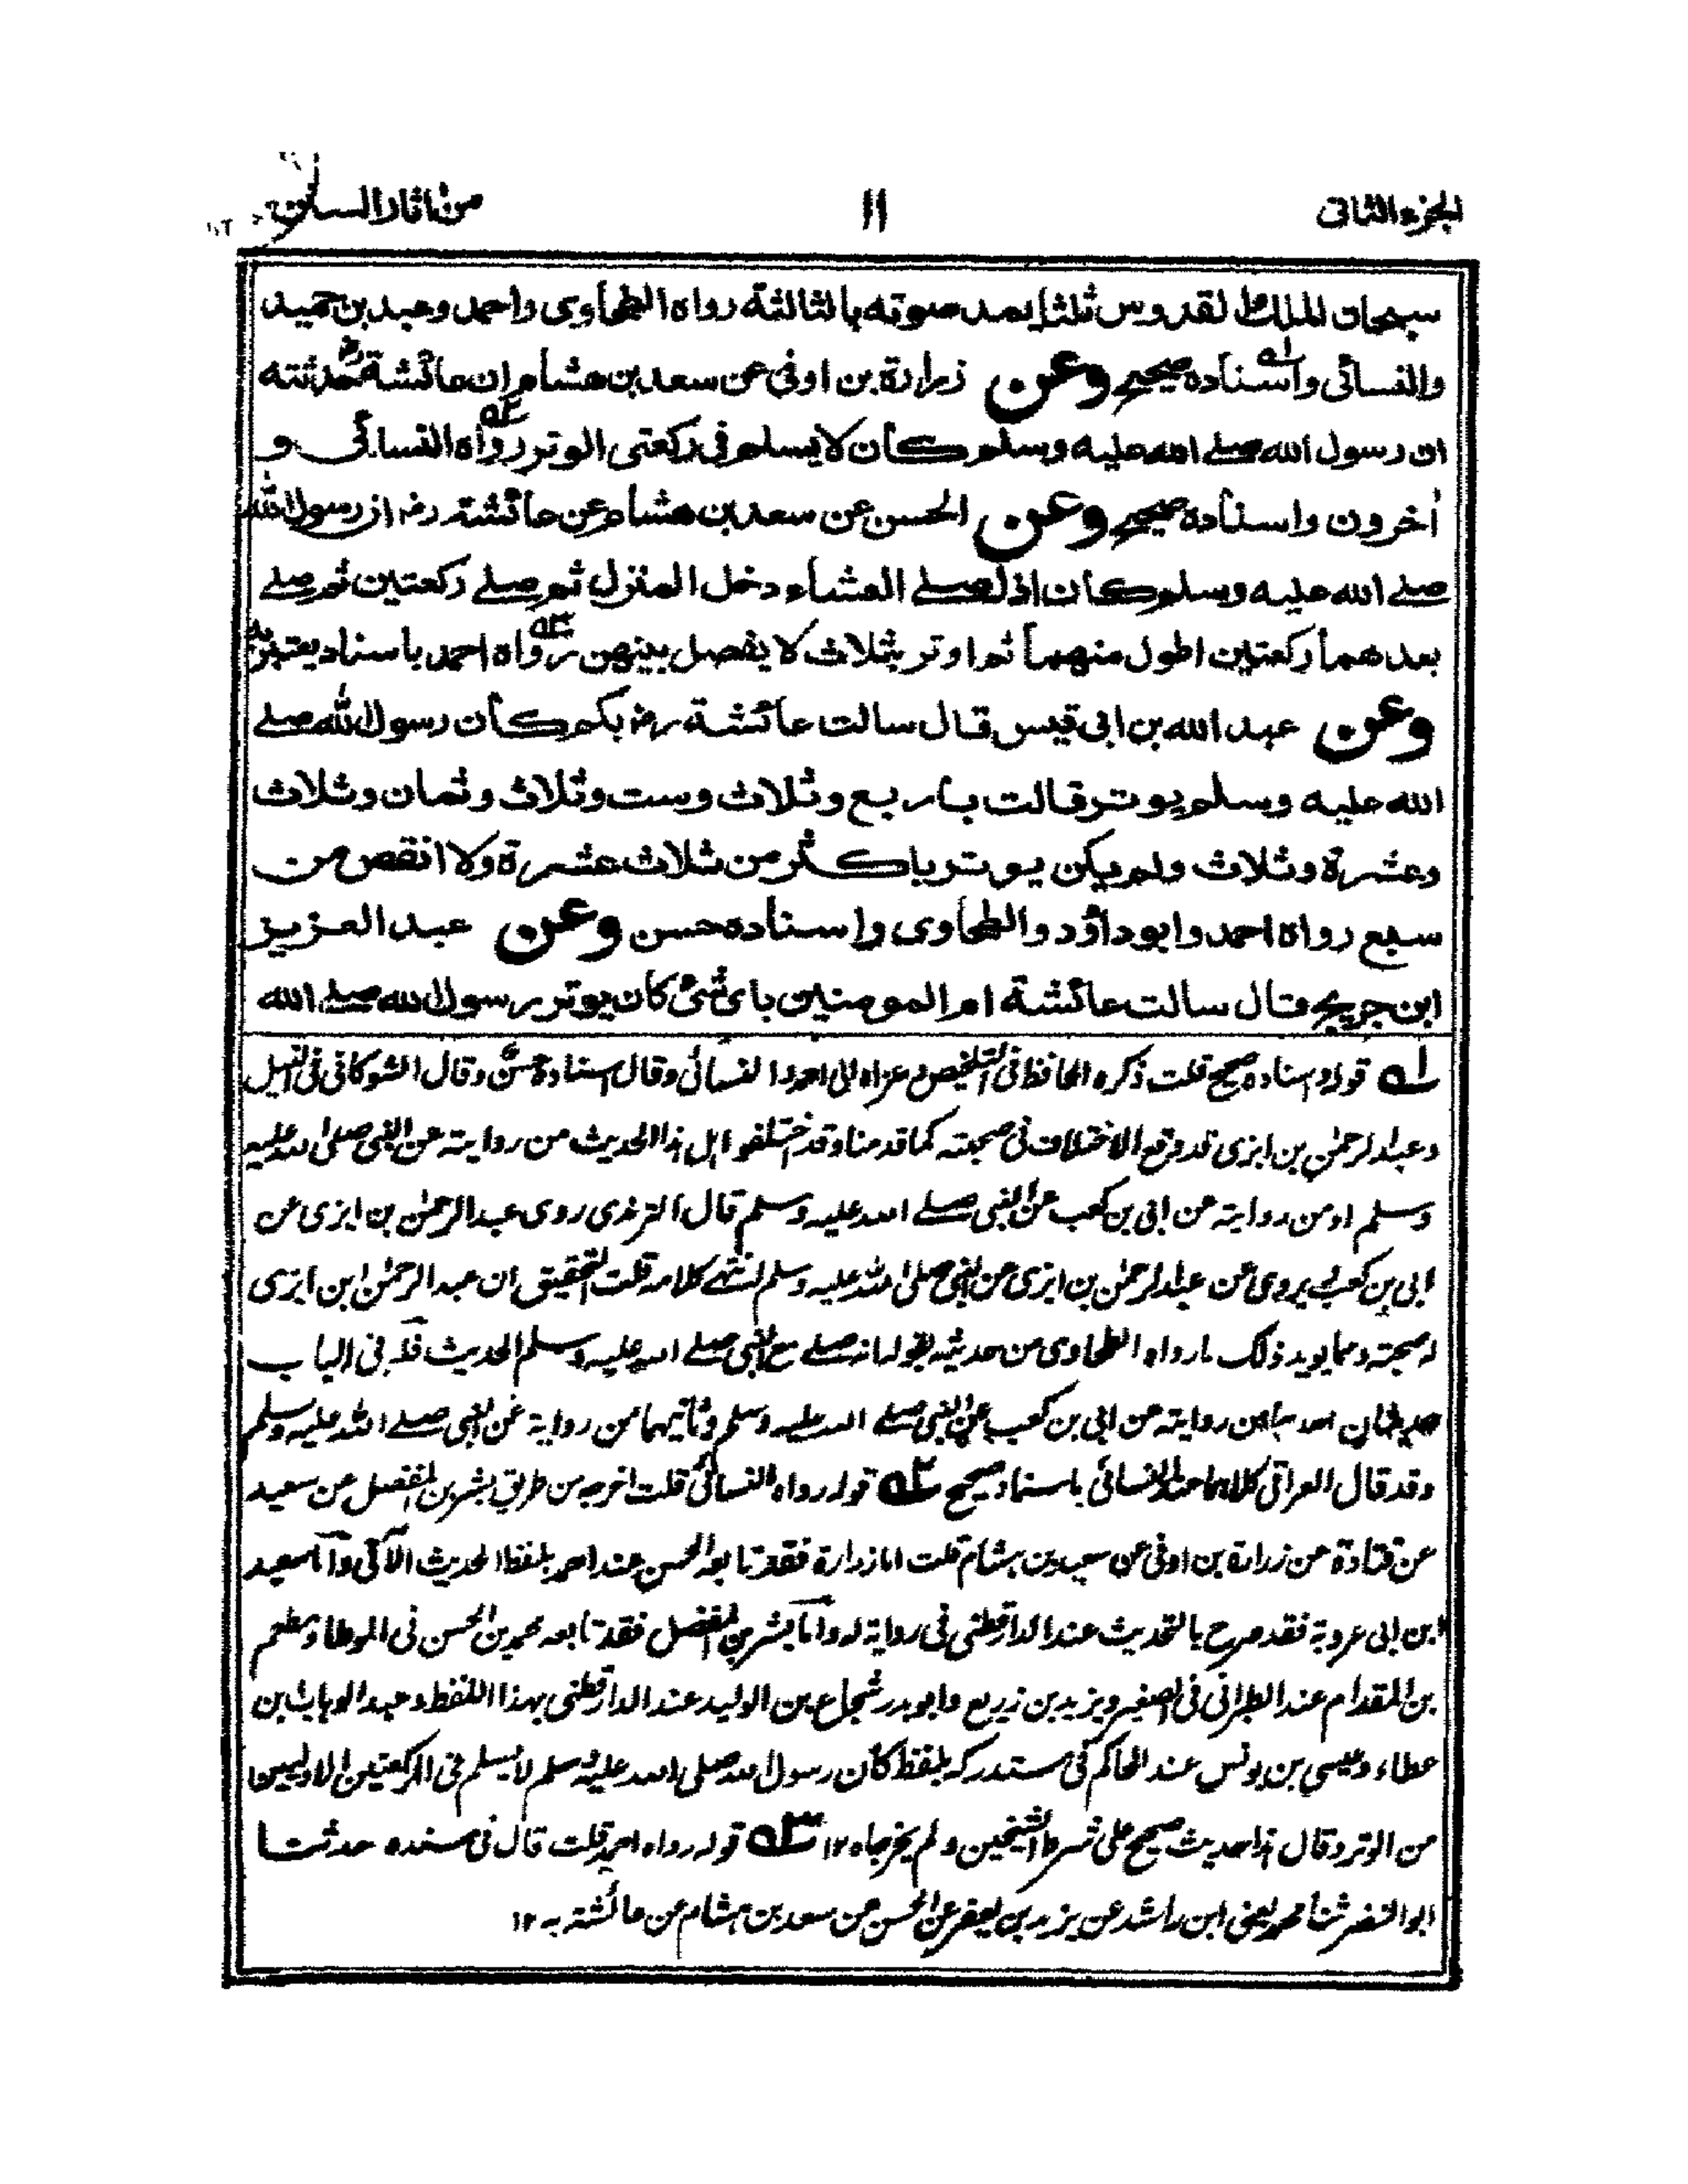 الجزء الثانی ۱۱ من اثار السنن
سبحان الملک القدوس ثلثا یمد صوته بالثالثة رواه الطحاوی واحمد وعبد بن حمید
والنسائی واسناده صحیح وعن زرارة بن اوفی عن سعد بن هشام ان عائشة رض حدثته
ان رسول الله صلے الله علیه وسلم کان لا یسلم فی رکعتی الوتر رواه النسائی و
اٰخرون واسناده صحیح وعن الحسن عن سعد بن هشام عن عائشة رض ان رسول الله
صلے الله علیه وسلم کان اذا صلے العشاء دخل المنزل ثم صلے رکعتین ثم صلے
بعدهما رکعتین اطول منهما ثم اوتر بثلاث لا یفصل بینهن رواه احمد باسناد یعتبر به
وعن عبد الله بن ابی قیس قال سالت عائشة رض بکم کان رسول الله صلے
الله علیه وسلم یوتر قالت باربع وثلاث وست وثلاث وثمان وثلاث
وعشرة وثلاث ولم یکن یوتر باکثر من ثلاث عشرة ولا انقص من
سبع رواه احمد وابو داؤد والطحاوی واسناده حسن وعن عبد العزیز
ابن جریج قال سالت عائشة ام المومنین بای شیٔ کان یوتر رسول الله صلے الله
۱ه قوله واسناده صحیح قلت ذکره الحافظ فی التلخیص وعزاه الی احمد والنسائی وقال اسناده حسن وقال الشوکانی فی النیل
وعبد الرحمٰن بن ابزی قد وقع الاختلاف فی صحبته کما قدمنا وقد اختلفوا هل هذا الحدیث من روایته عن النبی صلی الله علیه
وسلم او من روایته عن ابی بن کعب عن النبی صلے الله علیه وسلم قال الترمذی روی عبد الرحمٰن بن ابزی عن
ابی بن کعب ویروی عن عبد الرحمٰن بن ابزی عن النبی صلی الله علیه وسلم انتهے کلامه قلت التحقیق ان عبد الرحمٰن ابن ابزی
له صحبة ومما یوید ذلک ما رواه الطحاوی من حدیثه بقوله انه صلے مع النبی صلے الله علیه وسلم الحدیث فله فی الباب
حدیثان احدهما من روایته عن ابی بن کعب عن النبی صلے الله علیه وسلم وثانیهما من روایة عن النبی صلے الله علیه وسلم
وقد قال العراقی کلاهما عند النسائی باسناد صحیح ۲ه قوله رواه النسائی قلت اخرجه من طریق بشر بن المفضل عن سعید
عن قتادة عن زرارة بن اوفی عن سعد بن هشام قلت اما زرارة فقد تابعه الحسن عند احمد بلفظ الحدیث الآتی واما سعید
ابن ابی عروبة فقد صرح بالتحدیث عند الدارقطنی فی روایة له واما بشر بن المفضل فقد تابعه محمد بن الحسن فی الموطا ومطعم
بن المقدام عند الطبرانی فی الصغیر ویزید بن زریع وابو بدر شجاع بن الولید عند الدارقطنی بهذا اللفظ وعبد الوهاب بن
عطاء وعیسی بن یونس عند الحاکم فی مستدرکه بلفظ کان رسول الله صلی الله علیه وسلم لا یسلم فی الرکعتین الاولیین
من الوتر وقال هذا حدیث صحیح علی شرط الشیخین ولم یخرجاه ۱۲ ۳ه قوله رواه احمد قلت قال فی مسنده حدثنا
ابو النضر ثنا محمد یعنی ابن راشد عن یزید بن یعفر عن الحسن عن سعد بن هشام عن عائشة به ۱۲